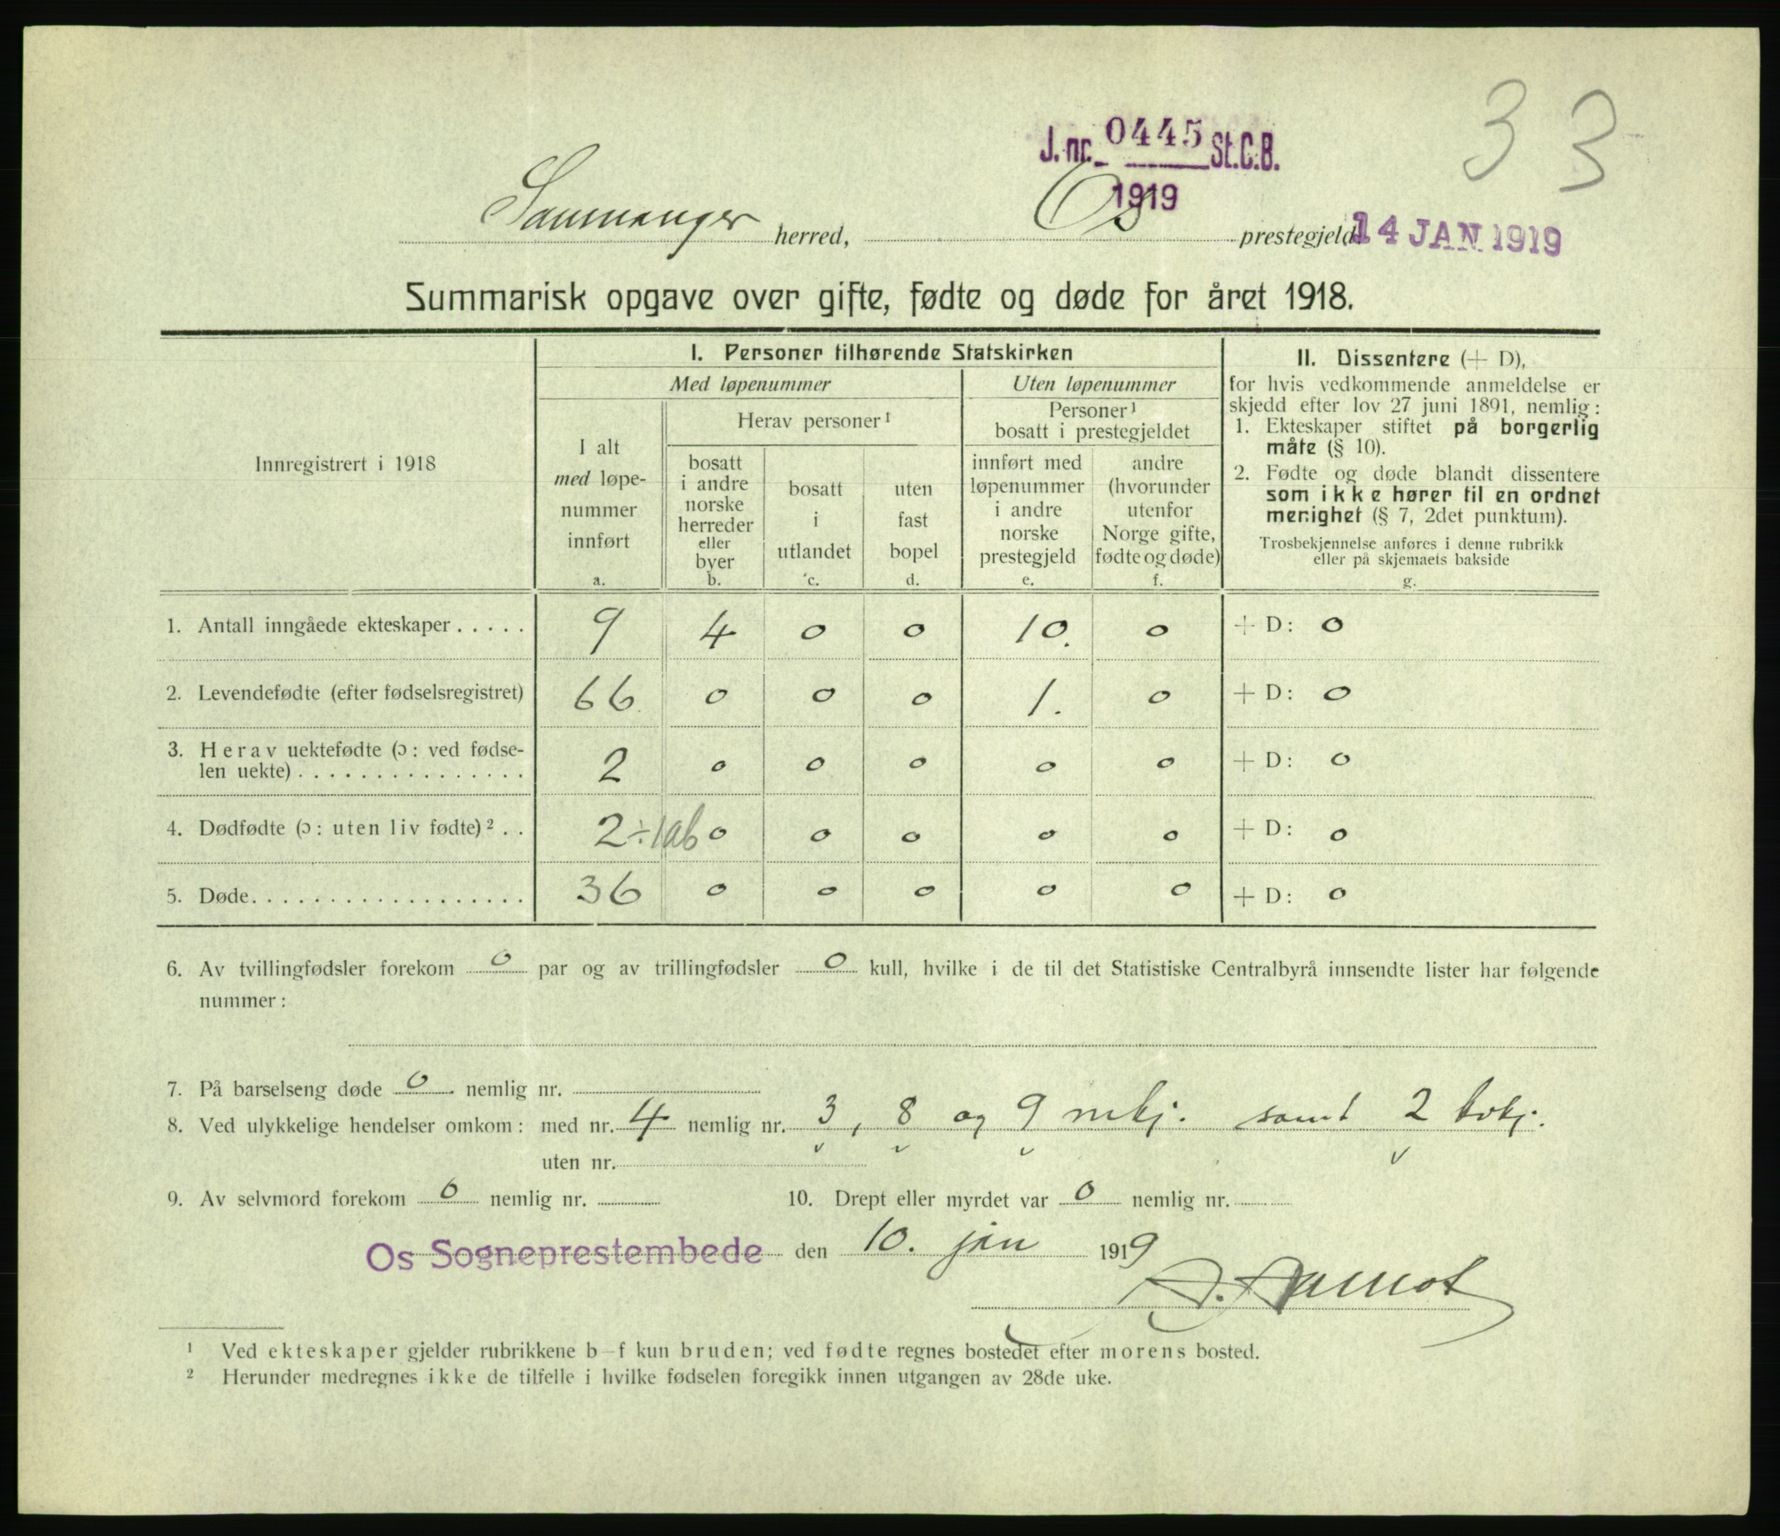 33
J. nr. 0445 St.C.B.
1919
Sammanger herred, Os prestegjeld
14 JAN 1919
Summarisk opgave over gifte, fødte og døde for året 1918.
Innregistrert i 1918
I. Personer tilhørende Statskirken
Med løpenummer
Uten løpenummer
I alt
med løpe-
nummer
innført
a.
Herav personer¹
bosatt
i andre
norske
herreder
eller
byer
b.
bosatt
i
utlandet
c.
uten
fast
bopel
d.
Personer¹
bosatt i prestegjeldet
innført med
løpenummer
i andre
norske
prestegjeld
e.
andre
(hvorunder
utenfor
Norge gifte,
fødte og døde)
f.
II. Dissentere (+ D),
for hvis vedkommende anmeldelse er
skjedd efter lov 27 juni 1891, nemlig:
1. Ekteskaper stiftet på borgerlig
måte (§ 10).
2. Fødte og døde blandt dissentere
som ikke hører til en ordnet
menighet (§ 7, 2det punktum).
Trosbekjennelse anføres i denne rubrikk
eller på skjemaets bakside
g.
1. Antall inngåede ekteskaper ..... 9 4 0 0 10. 0 + D: 0
2. Levendefødte (efter fødselsregistret) 66 0 0 0 1. 0 + D: 0
3. Herav uektefødte (ɔ: ved fødse-
len uekte) ............... 2 0 0 0 0 0 + D: 0
4. Dødfødte (ɔ: uten liv fødte)² .. 2 ÷ 1ab 0 0 0 0 0 + D: 0
5. Døde.................. 36 0 0 0 0 0 + D: 0
6. Av tvillingfødsler forekom 0 par og av trillingfødsler 0 kull, hvilke i de til det Statistiske Centralbyrå innsendte lister har følgende
nummer:
7. På barselseng døde 0 nemlig nr.
8. Ved ulykkelige hendelser omkom: med nr. 4 nemlig nr. 3, 8 og 9 mkj. samt 2 kvkj.
uten nr.
9. Av selvmord forekom 0 nemlig nr. 10. Drept eller myrdet var 0 nemlig nr.
Os Sogneprestembede den 10. jan 1919
¹ Ved ekteskaper gjelder rubrikkene b–f kun bruden; ved fødte regnes bostedet efter morens bosted.
² Herunder medregnes ikke de tilfelle i hvilke fødselen foregikk innen utgangen av 28de uke.